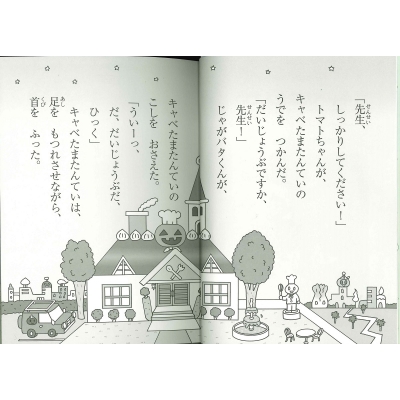 「先生、
しっかりしてください!」
トマトちゃんが、
キャベたまたんていの
うでを つかんだ。
「だいじょうぶですか、
先生!」
じゃがバタくんが、
キャベたまたんていの
こしを おさえた。
「ういーっ、
だ、だいじょうぶだ、
ひっく」
キャベたまたんていは、
足を もつれさせながら、
首を ふった。